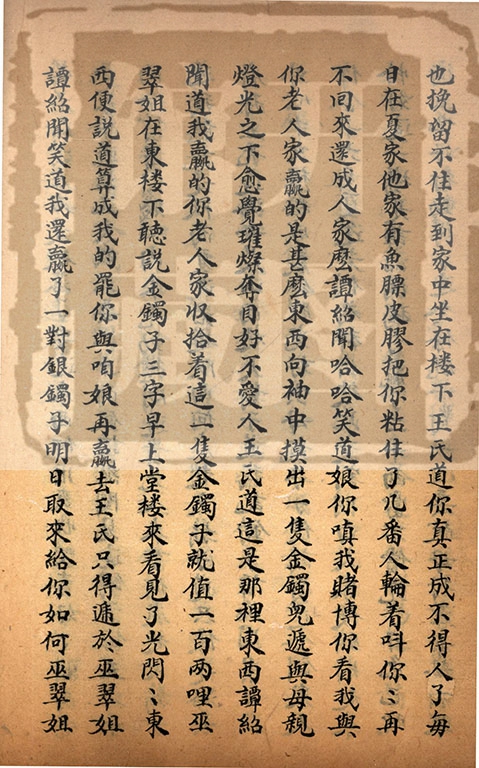 也挽留不住走到家中坐在楼下王氏道你真正成不得人了每
日在夏家他家有魚膘皮膠把你粘住了几番人輪着叫你〻再
不回來還成人家麽譚紹聞哈哈笑道娘你嗔我賭博你看我與
你老人家贏的是甚麽東西向袖中摸出一隻金鐲兒遞與母親
燈光之下愈覺璀燦奪目好不愛人王氏道這是那裡東西譚紹
聞道我贏的你老人家收拾着這一隻金鐲子就值一百两哩巫
翠姐在東楼下聽説金鐲子三字早上堂楼來看見了光閃〻東
西便説道算成我的罷你與咱娘再贏去王氏只得逓於巫翠姐
譚紹聞笑道我還贏了一對銀鐲子明日取來給你如何巫翠姐